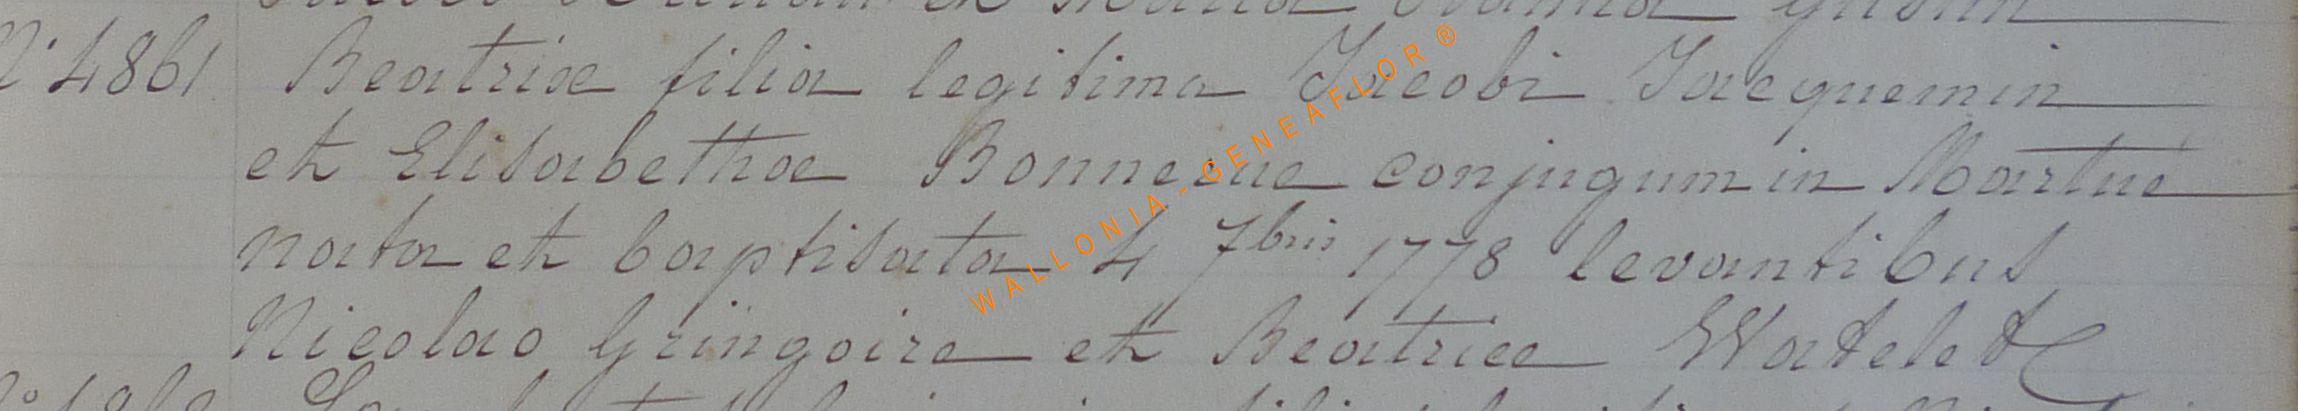 N° 4861 Beatrix filia legitima Jacobi Jacquemin
et Elisabethae Bonnecue conjugum in Martué
nata et baptisata 4 7bris 1778 levantibus
Nicolao Gringoire et Beatrice Watelet
WALLONIA-GENEAFLOR®